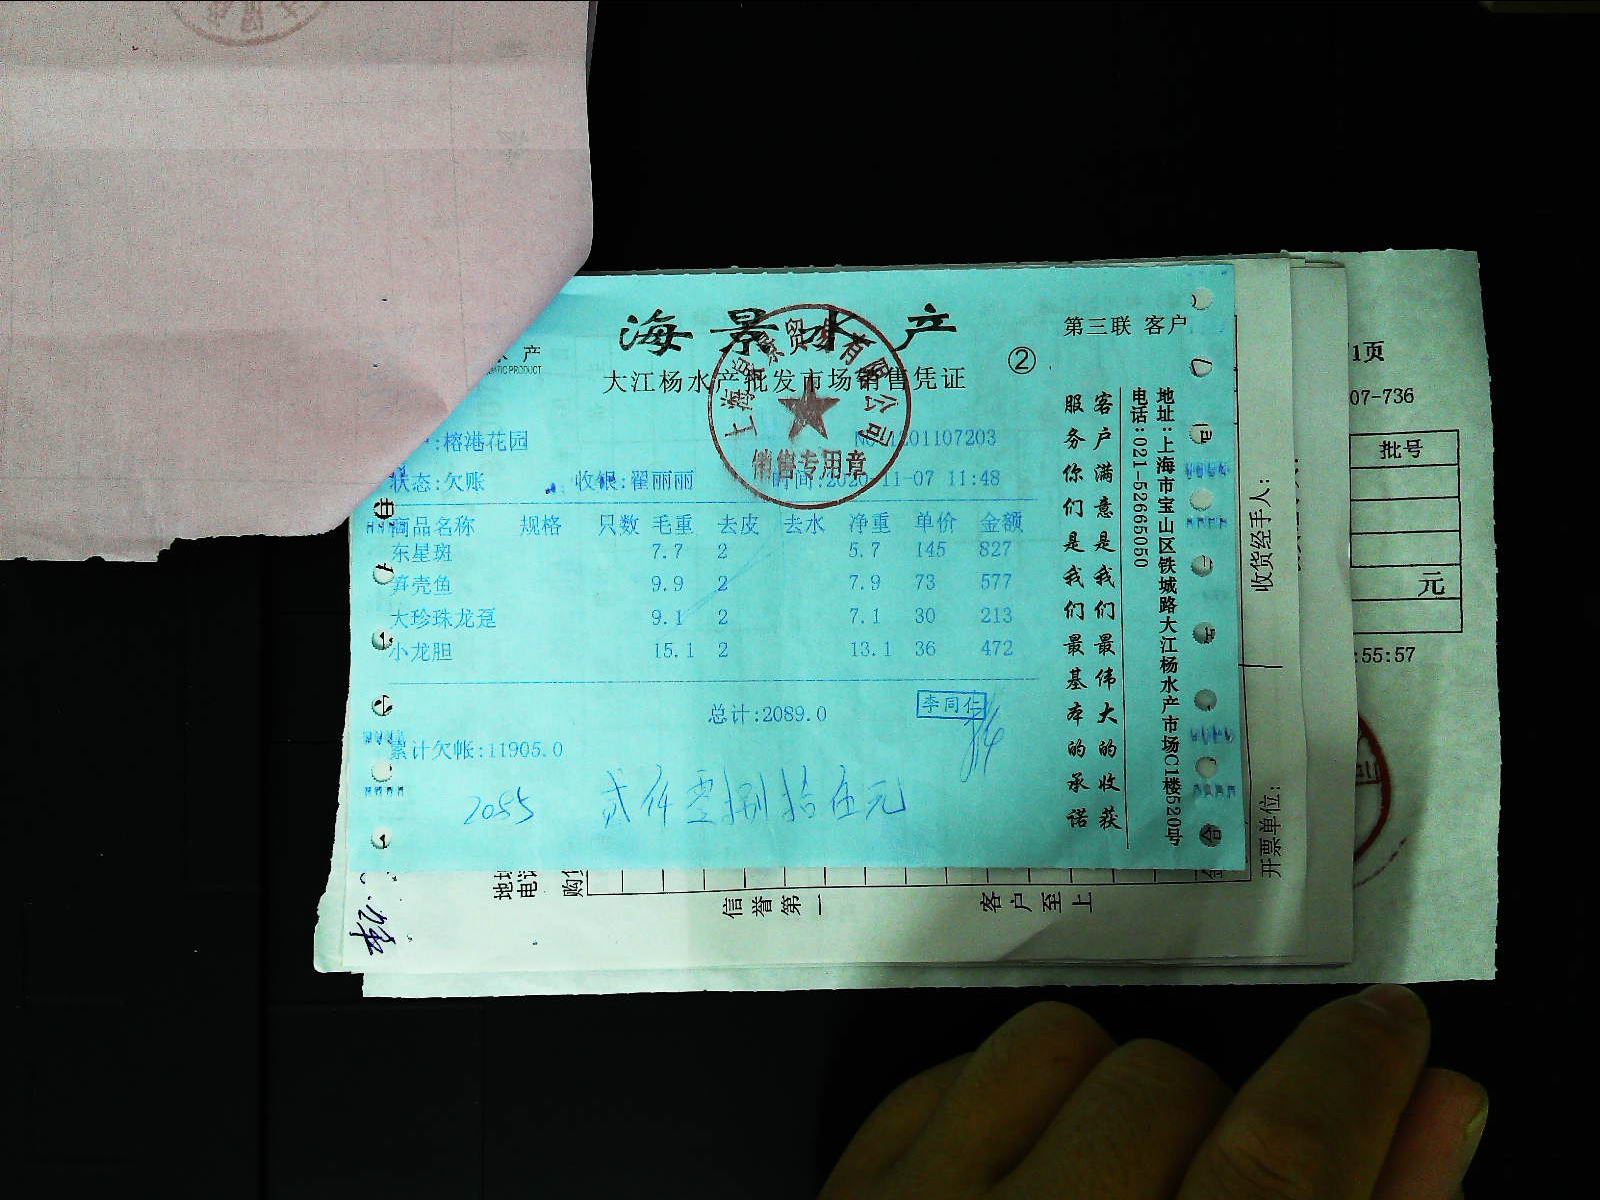 海景水产
第三联 客户
产
大江杨水产批发市场销售凭证
②
上海海景贸易有限公司
销售专用章
:榕港花园
1201107203
状态:欠账 收银:翟丽丽 时间:2020-11-07 11:48
商品名称 规格 只数 毛重 去皮 去水 净重 单价 金额
东星斑 7.7 2 5.7 145 827
笋壳鱼 9.9 2 7.9 73 577
大珍珠龙趸 9.1 2 7.1 30 213
小龙胆 15.1 2 13.1 36 472
总计:2089.0
李同仁
累计欠帐:11905.0
2085 贰仟零捌拾伍元
客户满意是我们最伟大的收获
服务你们是我们最基本的承诺
地址:上海市宝山区铁城路大江杨水产市场C1楼520号
电话:021-52665050
收货经手人:
开票单位:
信誉第一
客户至上
地址
电话
1页
07-736
批号
元
:55:57